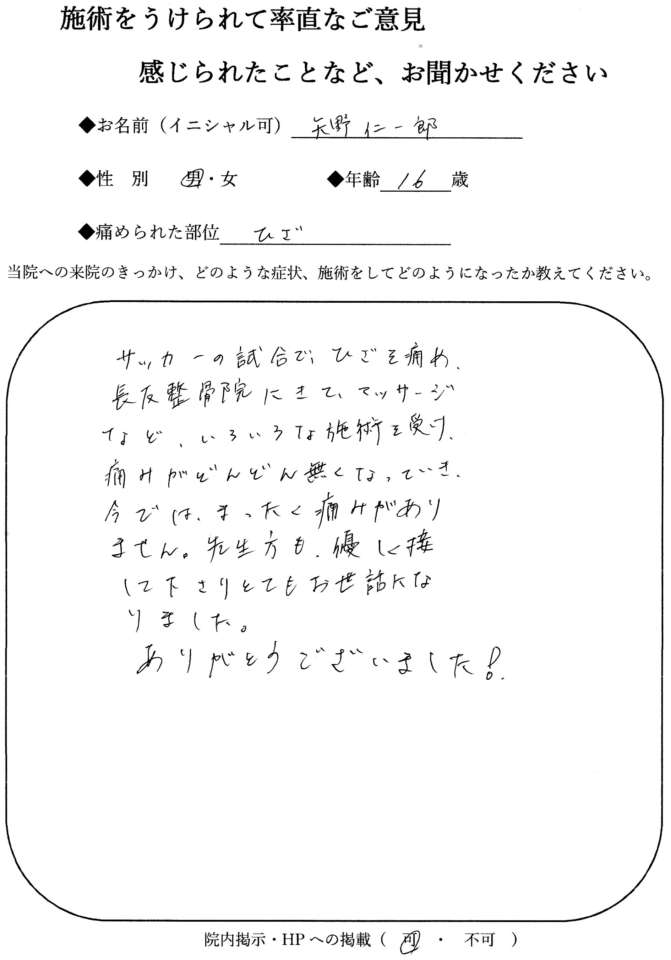 施術をうけられて率直なご意見
感じられたことなど、お聞かせください
◆お名前（イニシャル可） 矢野 仁一郎
◆性 別 男・女 ◆年齢 16 歳
◆痛められた部位 ひざ
当院への来院のきっかけ、どのような症状、施術をしてどのようになったか教えてください。
サッカーの試合で、ひざを痛め、
長友整骨院にきて、マッサージ
など、いろいろな施術を受け、
痛みがぞんぞん無くなっていき、
今では、まったく痛みがあり
ません。先生方も、優しく接
して下さりとてもお世話にな
りました。
ありがとうございました!
院内掲示・HPへの掲載（ 可 ・ 不可 ）